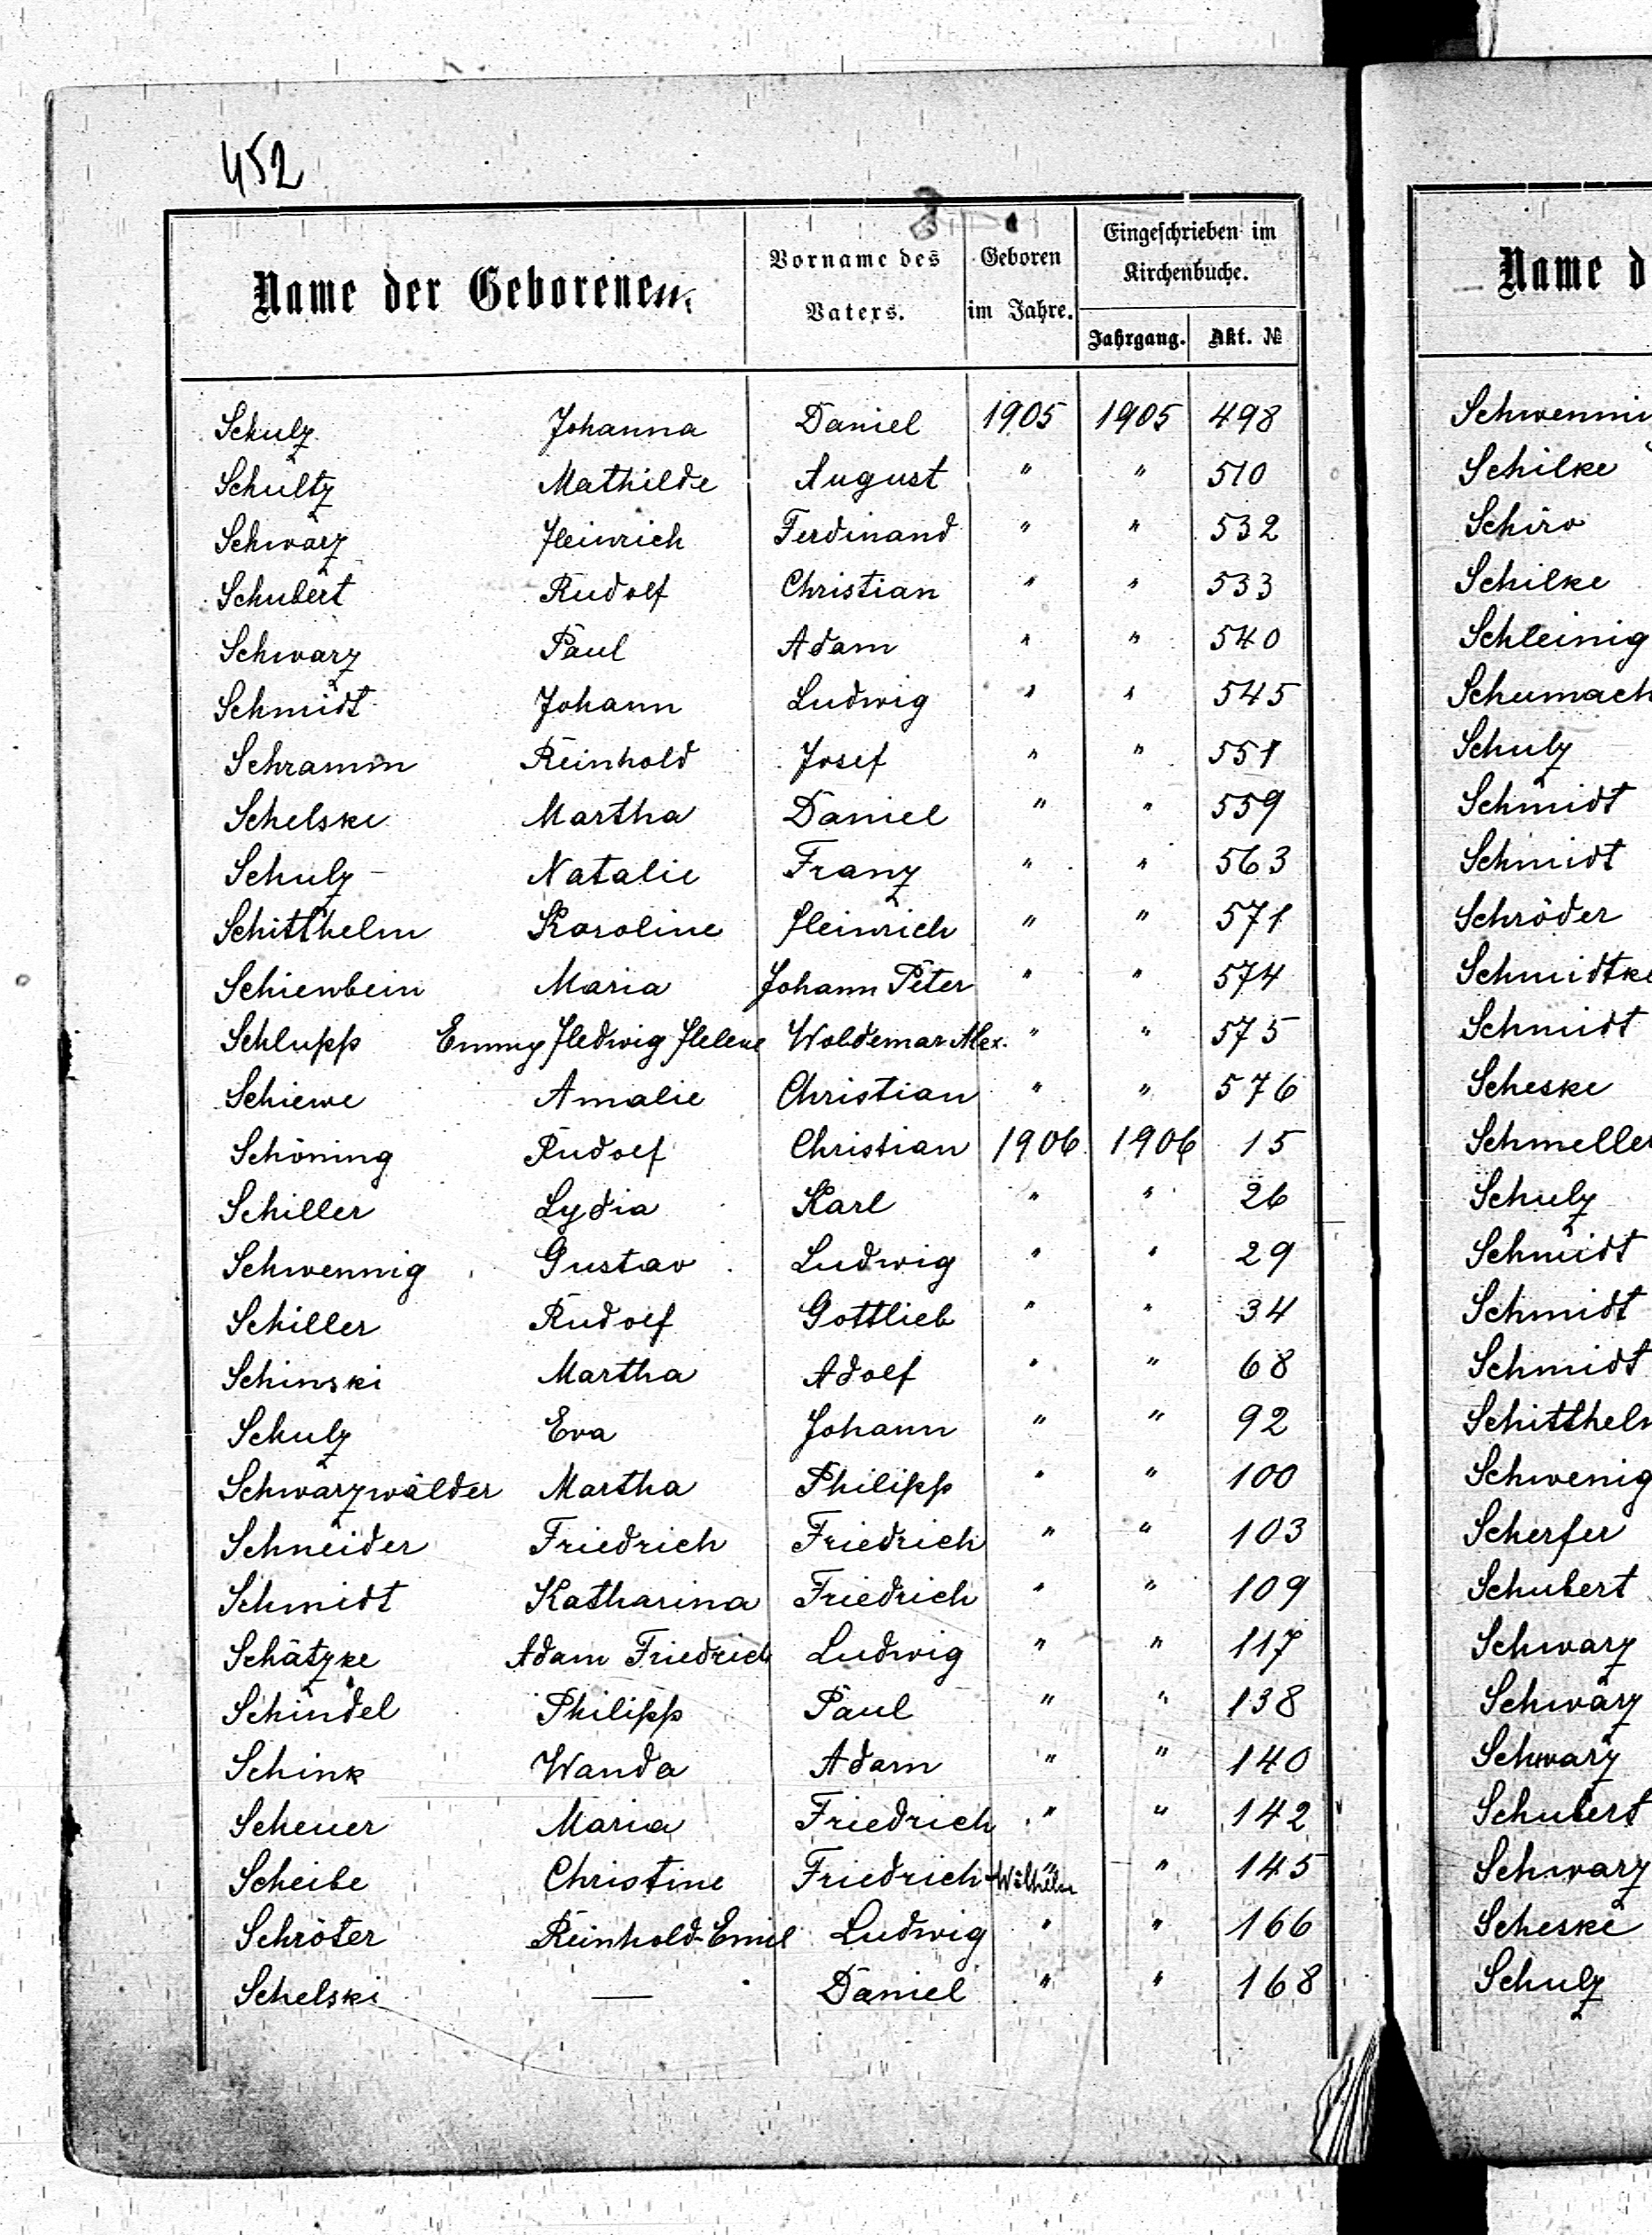 452
Name der Geborenen.
Vorname des Vaters.
Geboren im Jahre.
Eingeschrieben im Kirchenbuche.
Jahrgang.
Akt. №
Schulz Johanna Daniel 1905 1905 498
Schultz Mathilde August " " 510
Schwarz Heinrich Ferdinand " " 532
Schubert Rudolf Christian " " 533
Schwarz Paul Adam " " 540
Schmidt Johann Ludwig " " 545
Schramm Reinhold Josef " " 551
Schelske Martha Daniel " " 559
Schulz Natalie Franz " " 563
Schitthelm Karoline Heinrich " " 571
Schienbein Maria Johann Peter " " 574
Schlupp Emmy Hedwig Helene Woldemar Alex. " " 575
Schiewe Amalie Christian " " 576
Schöning Rudolf Christian 1906 1906 15
Schiller Lydia Karl " " 26
Schwennig Gustav Ludwig " " 29
Schiller Rudolf Gottlieb " " 34
Schinski Martha Adolf " " 68
Schulz Eva Johann " " 92
Schwarzwälder Martha Philipp " " 100
Schneider Friedrich Friedrich " " 103
Schmidt Katharina Friedrich " " 109
Schätzke Adam Friedrich Ludwig " " 117
Schindel Philipp Paul " " 138
Schink Wanda Adam " " 140
Scheuer Maria Friedrich " " 142
Scheibe Christine Friedrich-Wilhelm " " 145
Schröter Reinhold-Emil Ludwig " " 166
Schelski — Daniel " " 168
Name d
Schwenni
Schilke
Schiro
Schilke
Schleinig
Schumach
Schulz
Schmidt
Schmidt
Schröder
Schmidtke
Schmidt
Scheske
Schmeller
Schulz
Schmidt
Schmidt
Schmidt
Schitthelm
Schwenig
Scherfer
Schubert
Schwarz
Schwarz
Schwarz
Schubert
Schwarz
Scheske
Schulz